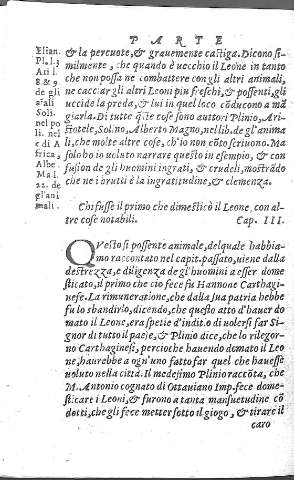 PARTE
Elian.
Pl. l.3
Ari l.
8. & 9.
de gli
a'ali
Soli.
nel po
li. nel
e di A
frica,
Albe
Ma l.
22. de
gl'ani
mali.
& la percuote, & grauemente castiga. Dicono si-
milmente, che quando è uecchio il Leone in tanto
che non possa ne combattere con gli altri animali,
ne cacciar gli altri Leoni piu freschi, & possenti, gli
uccide la preda, & lui in quel loco cōducono a mā
giarla. Di tutte q̄ste cose sono auttori Plinio, Ari
stotele, Solino, Alberto Magno, nel lib. de gl'anima
li, che molte altre cose, ch'io non cōto scriuono. Ma
solo ho in uoluto narrare questo in esempio, & con
fusion de gli huomini ingrati, & crudeli, mostrādo
che ne i bruti è la ingratitudine, & clemenza.
Chi fusse il primo che dimesticò il Leone, con al-
tre cose notabili. Cap. III.
QVesto sì possente animale, del quale habbia-
mo raccontato nel capit. passato, uiene dalla
destrezza, e diligenza de gl'huomini a esser dome
sticato, il primo che cio fece fu Hannone Carthagi-
nese. La rimuneratione, che dalla sua patria hebbe
fu lo sbandirlo, dicendo, che questo atto d'hauer do
mato il Leone, era spetie d'inditio di uolersi far Si-
gnor di tutto il paese, & Plinio dice, che lo rilegor-
no Carthaginesi, percioche hauendo domato il Leo
ne, haurebbe a ogn'uno fatto far quel che hauesse
uoluto nella città. Il medesimo Plinio raccōta, che
M. Antonio cognato di Ottauiano Imp. fece dome-
sticare i Leoni, & furono a tanta mansuetudine cō
dotti, che gli fece metter sotto il giogo, & tirare il
caro